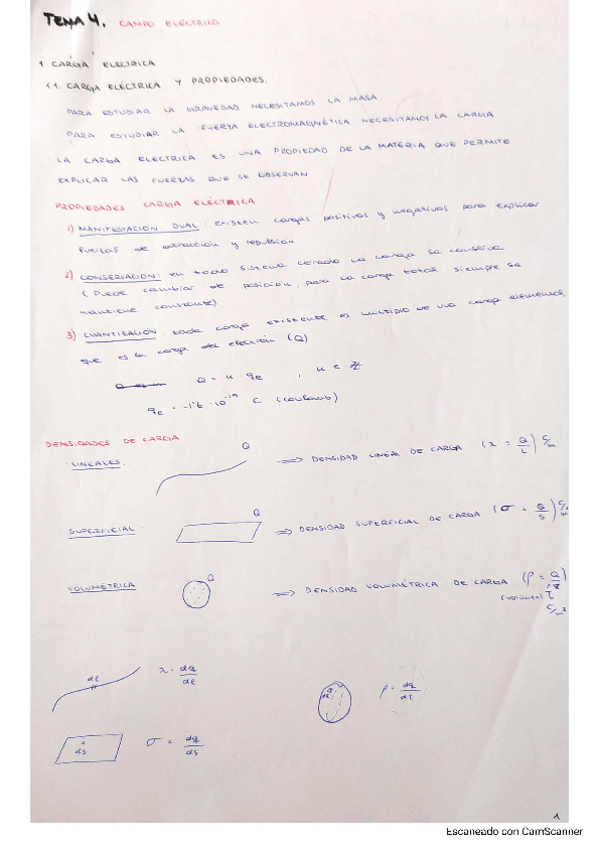 TEMA 4. CAMPO ELÉCTRICO
1 CARGA ELECTRICA
1.1. CARGA ELÉCTRICA Y PROPIEDADES.
PARA ESTUDIAR LA GRAVEDAD NECESITAMOS LA MASA.
PARA ESTUDIAR LA FUERZA ELECTROMAGNÉTICA NECESITAMOS LA CARGA
LA CARGA ELECTRICA ES UNA PROPIEDAD DE LA MATERIA QUE PERMITE
EXPLICAR LAS FUERZAS QUE SE OBSERVAN
PROPIEDADES CARGA ELÉCTRICA
1) MANIFESTACIÓN DUAL: existen cargas positivas y negativas para explicar
fuerzas de atracción y repulsión
2) CONSERVACIÓN: en todo sistema cerrado la carga se conserva
(Puede cambiar de posición, pero la carga total siempre se
mantiene constante)
3) CUANTIZACIÓN: toda carga existente es multiplo de una carga elemental,
que es la carga del electrón (Q)
Q = n · qe , n ∈ Z
qe = -1'6 · 10^-19 C (coulomb)
DENSIDADES DE CARGA
· LINEALES. Q => DENSIDAD LINEAL DE CARGA (λ = Q/L) C/m
SUPERFICIAL Q => DENSIDAD SUPERFICIAL DE CARGA (σ = Q/S) C/m
VOLUMÉTRICA Q => DENSIDAD VOLUMÉTRICA DE CARGA (ρ = Q/τ)
(volumen) τ
C/m³
dl λ = dq/dl
dτ ρ = dq/dτ
ds σ = dq/ds
1
Escaneado con CamScanner